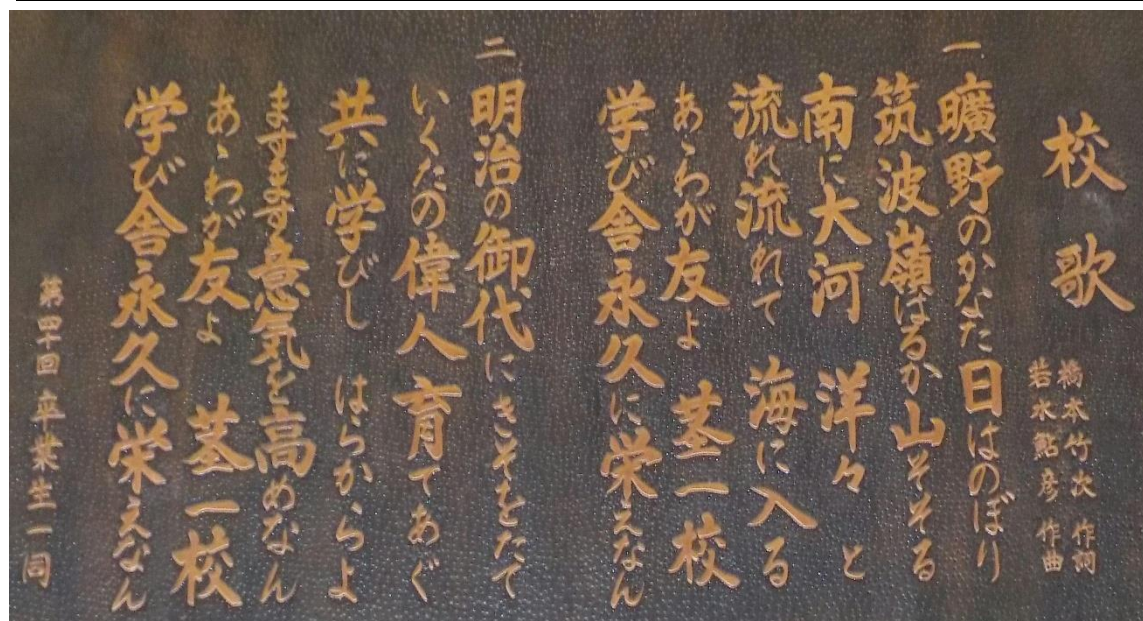 校歌
橋本竹次 作詞
岩水鮎彦 作曲
一、曠野のかなた日はのぼり
筑波嶺はるか山そそる
南に大河 洋々と
流れ流れて 海に入る
あゝわが友よ 茎一校
学び舎永久に栄えなん
二、明治の御代にきそをたて
いくたの偉人育てあぐ
共に学びし はらからよ
ますます意気を高めなん
あゝわが友よ 茎一校
学び舎永久に栄えなん
第四十回卒業生一同